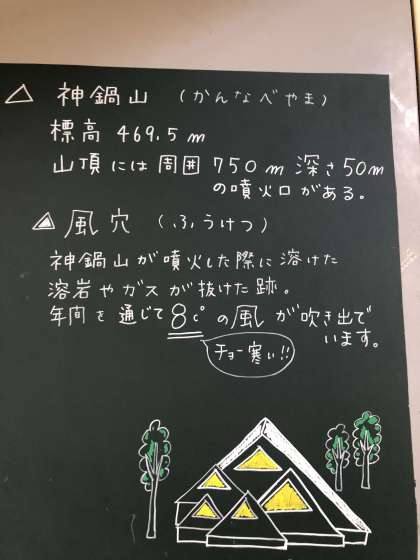 △ 神鍋山 (かんなべやま)
標高 469.5m
山頂には周囲 750m 深さ50m
の噴火口がある。
△ 風穴 (ふうけつ)
神鍋山が噴火した際に溶けた
溶岩やガスが抜けた跡。
年間を通じて8c°の風が吹き出て
います。
チョー寒い!!